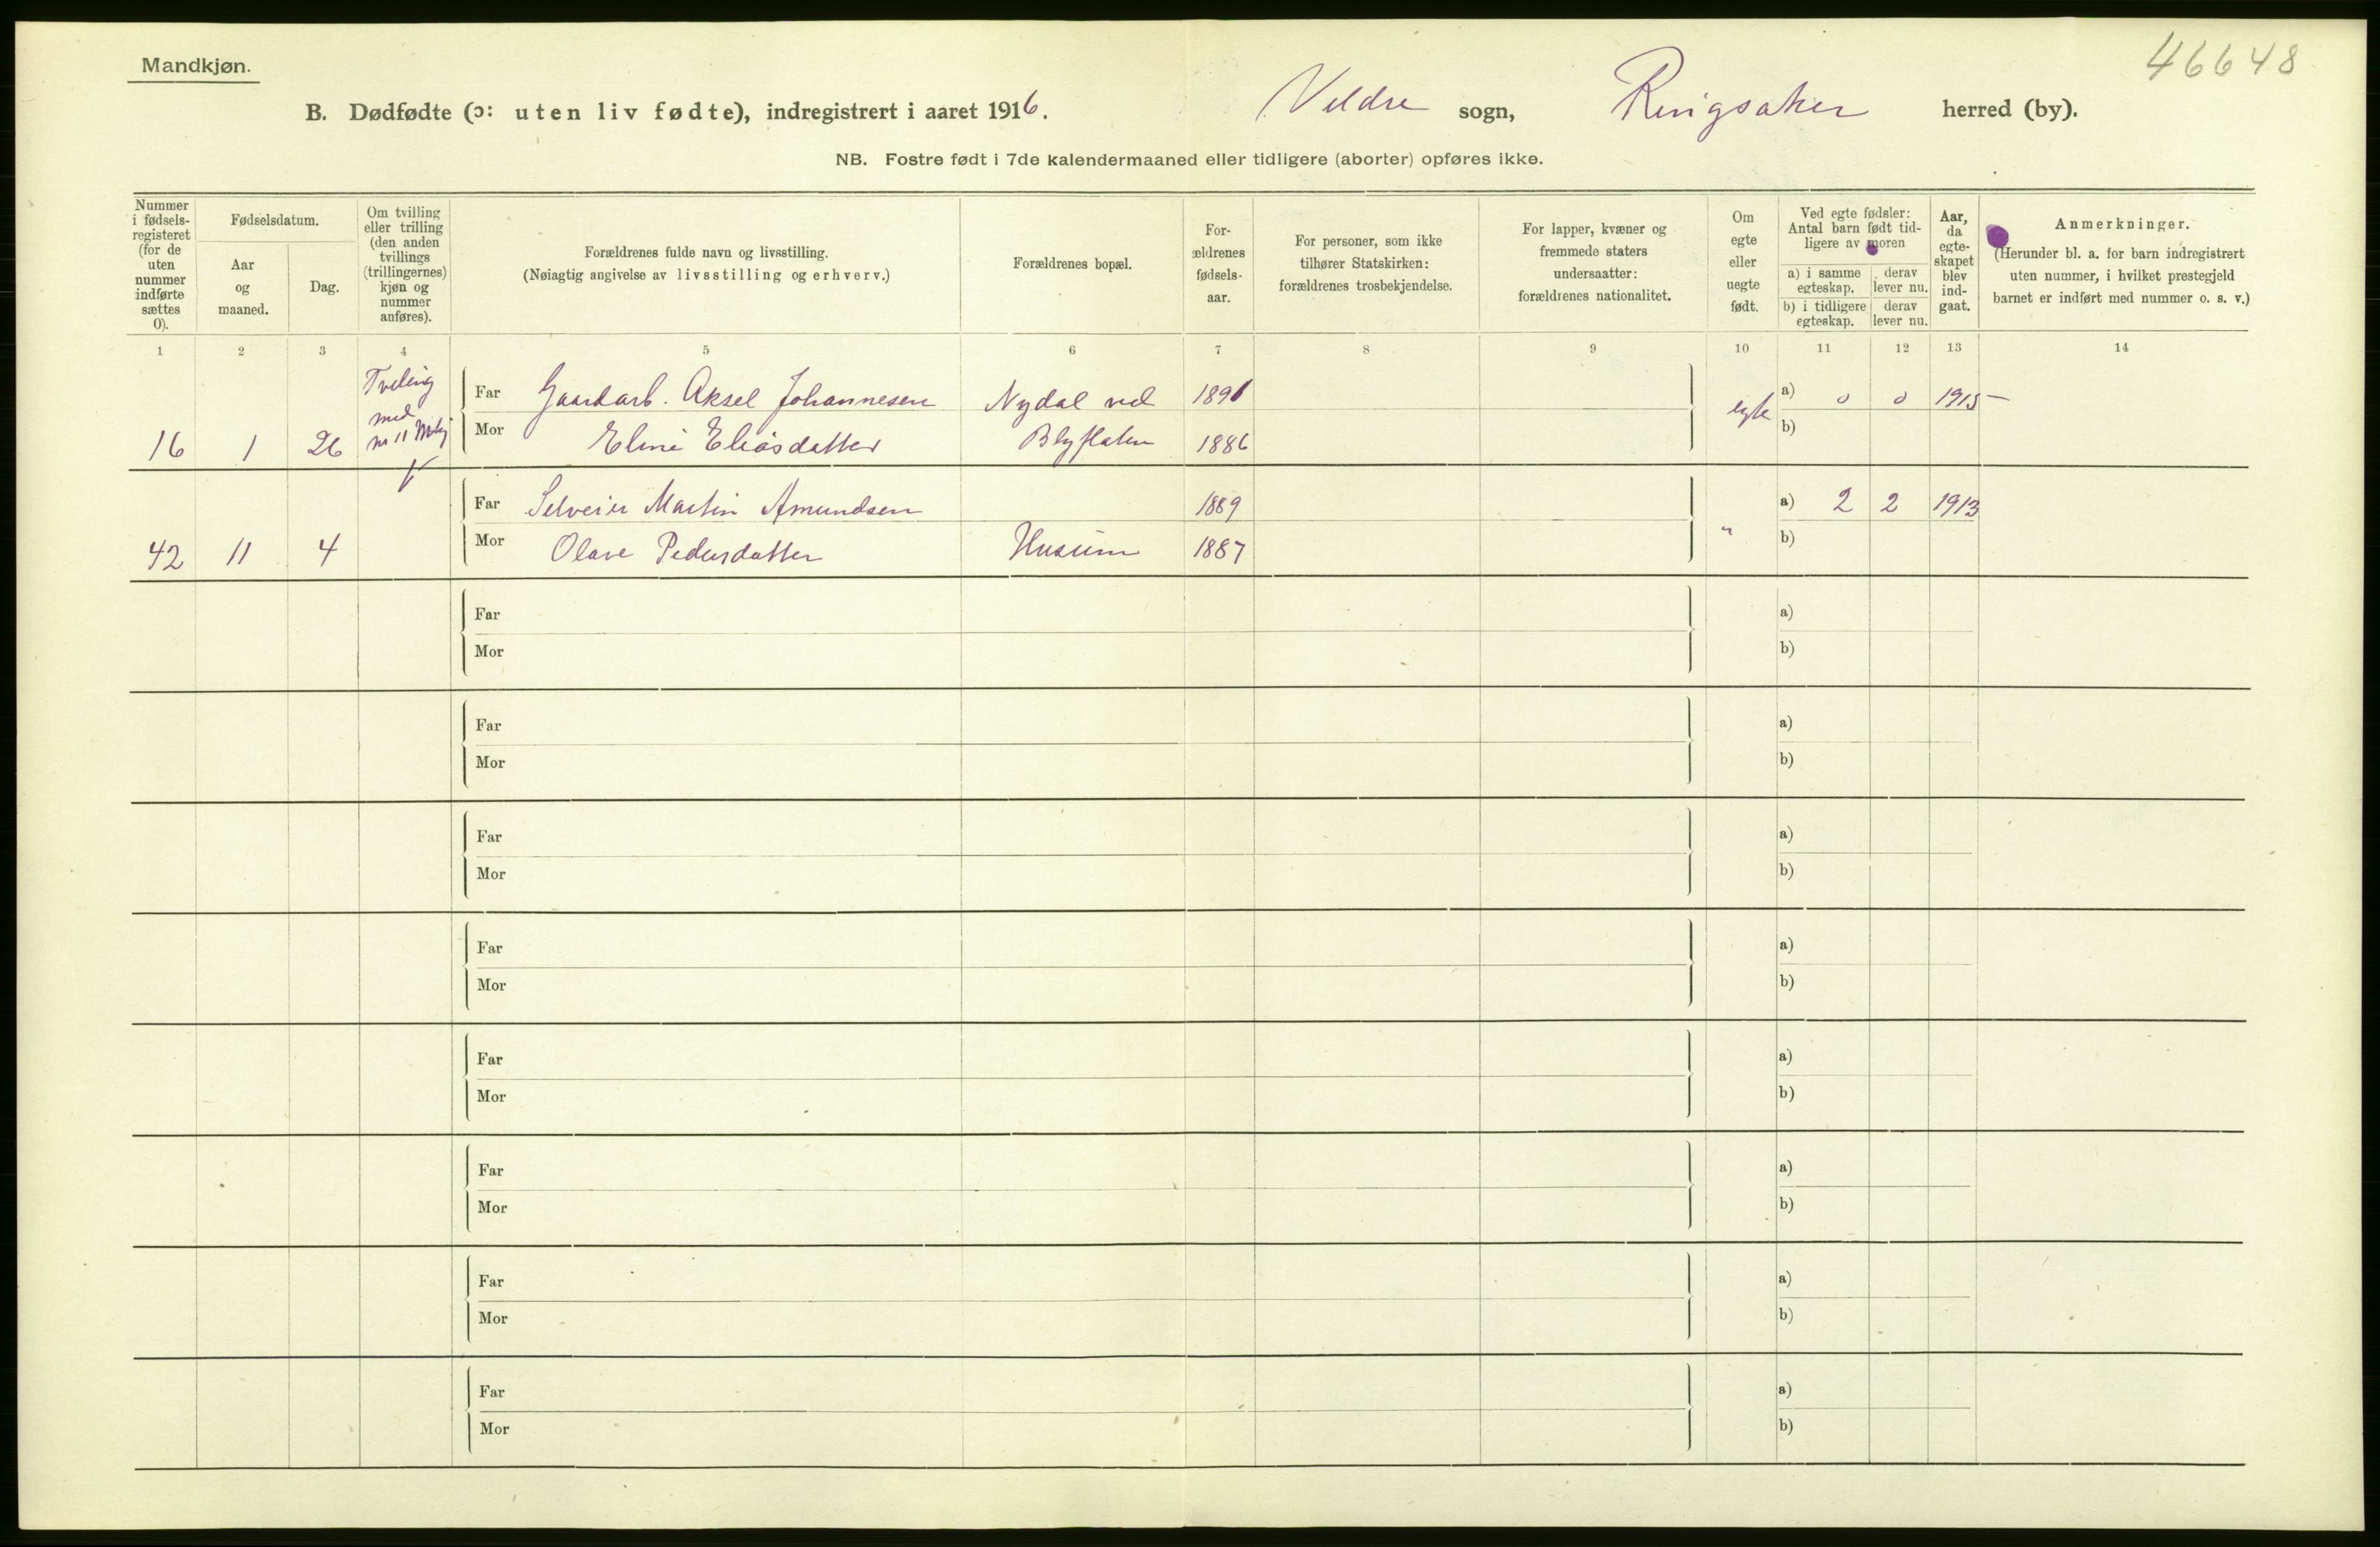 46648
Mandkjøn.
B. Dødfødte (ɔ: uten liv fødte), indregistrert i aaret 1916. Veldre sogn, Ringsaker herred (by).
NB. Fostre født i 7de kalendermaaned eller tidligere (aborter) opføres ikke.
Nummer i fødsels-registeret (for de uten nummer indførte sættes 0).
Fødselsdatum.
Aar og maaned.
Dag.
Om tvilling eller trilling (den anden tvillings (trillingernes) kjøn og nummer anføres).
Forældrenes fulde navn og livsstilling.
(Nøiagtig angivelse av livsstilling og erhverv.)
Forældrenes bopæl.
For-ældrenes fødsels-aar.
For personer, som ikke tilhører Statskirken: forældrenes trosbekjendelse.
For lapper, kvæner og fremmede staters undersaatter: forældrenes nationalitet.
Om egte eller uegte født.
Ved egte fødsler: Antal barn født tid-ligere av moren
a) i samme egteskap.
derav lever nu.
b) i tidligere egteskap.
derav lever nu.
Aar, da egte-skapet blev ind-gaat.
Anmerkninger.
(Herunder bl. a. for barn indregistrert uten nummer, i hvilket prestegjeld barnet er indført med nummer o. s. v.)
1 2 3 4 5 6 7 8 9 10 11 12 13 14
Tvilling
med
nr 11
Far Gaardarb. Aksel Johannesen Nydal ved 1891 egte a) 0 0 1915 –
16 1 26 Mor Eline Eliasdatter Blyflaten 1886 b)
Far Selveier Martin Amundsen 1889 " a) 2 2 1913
42 11 4 Mor Olave Pedersdatter Husum 1887 b)
Far a)
Mor b)
Far a)
Mor b)
Far a)
Mor b)
Far a)
Mor b)
Far a)
Mor b)
Far a)
Mor b)
Far a)
Mor b)
Far a)
Mor b)